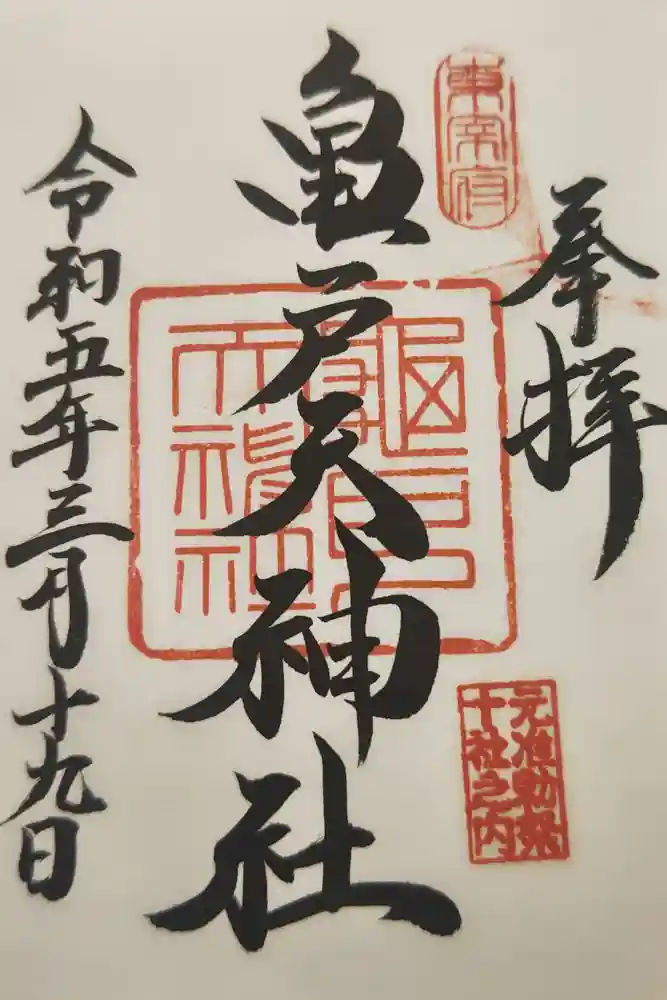 奉拝
東宰府
元准勅祭
十社之内
亀戸天神社
亀戸
天神社
令和五年三月十九日